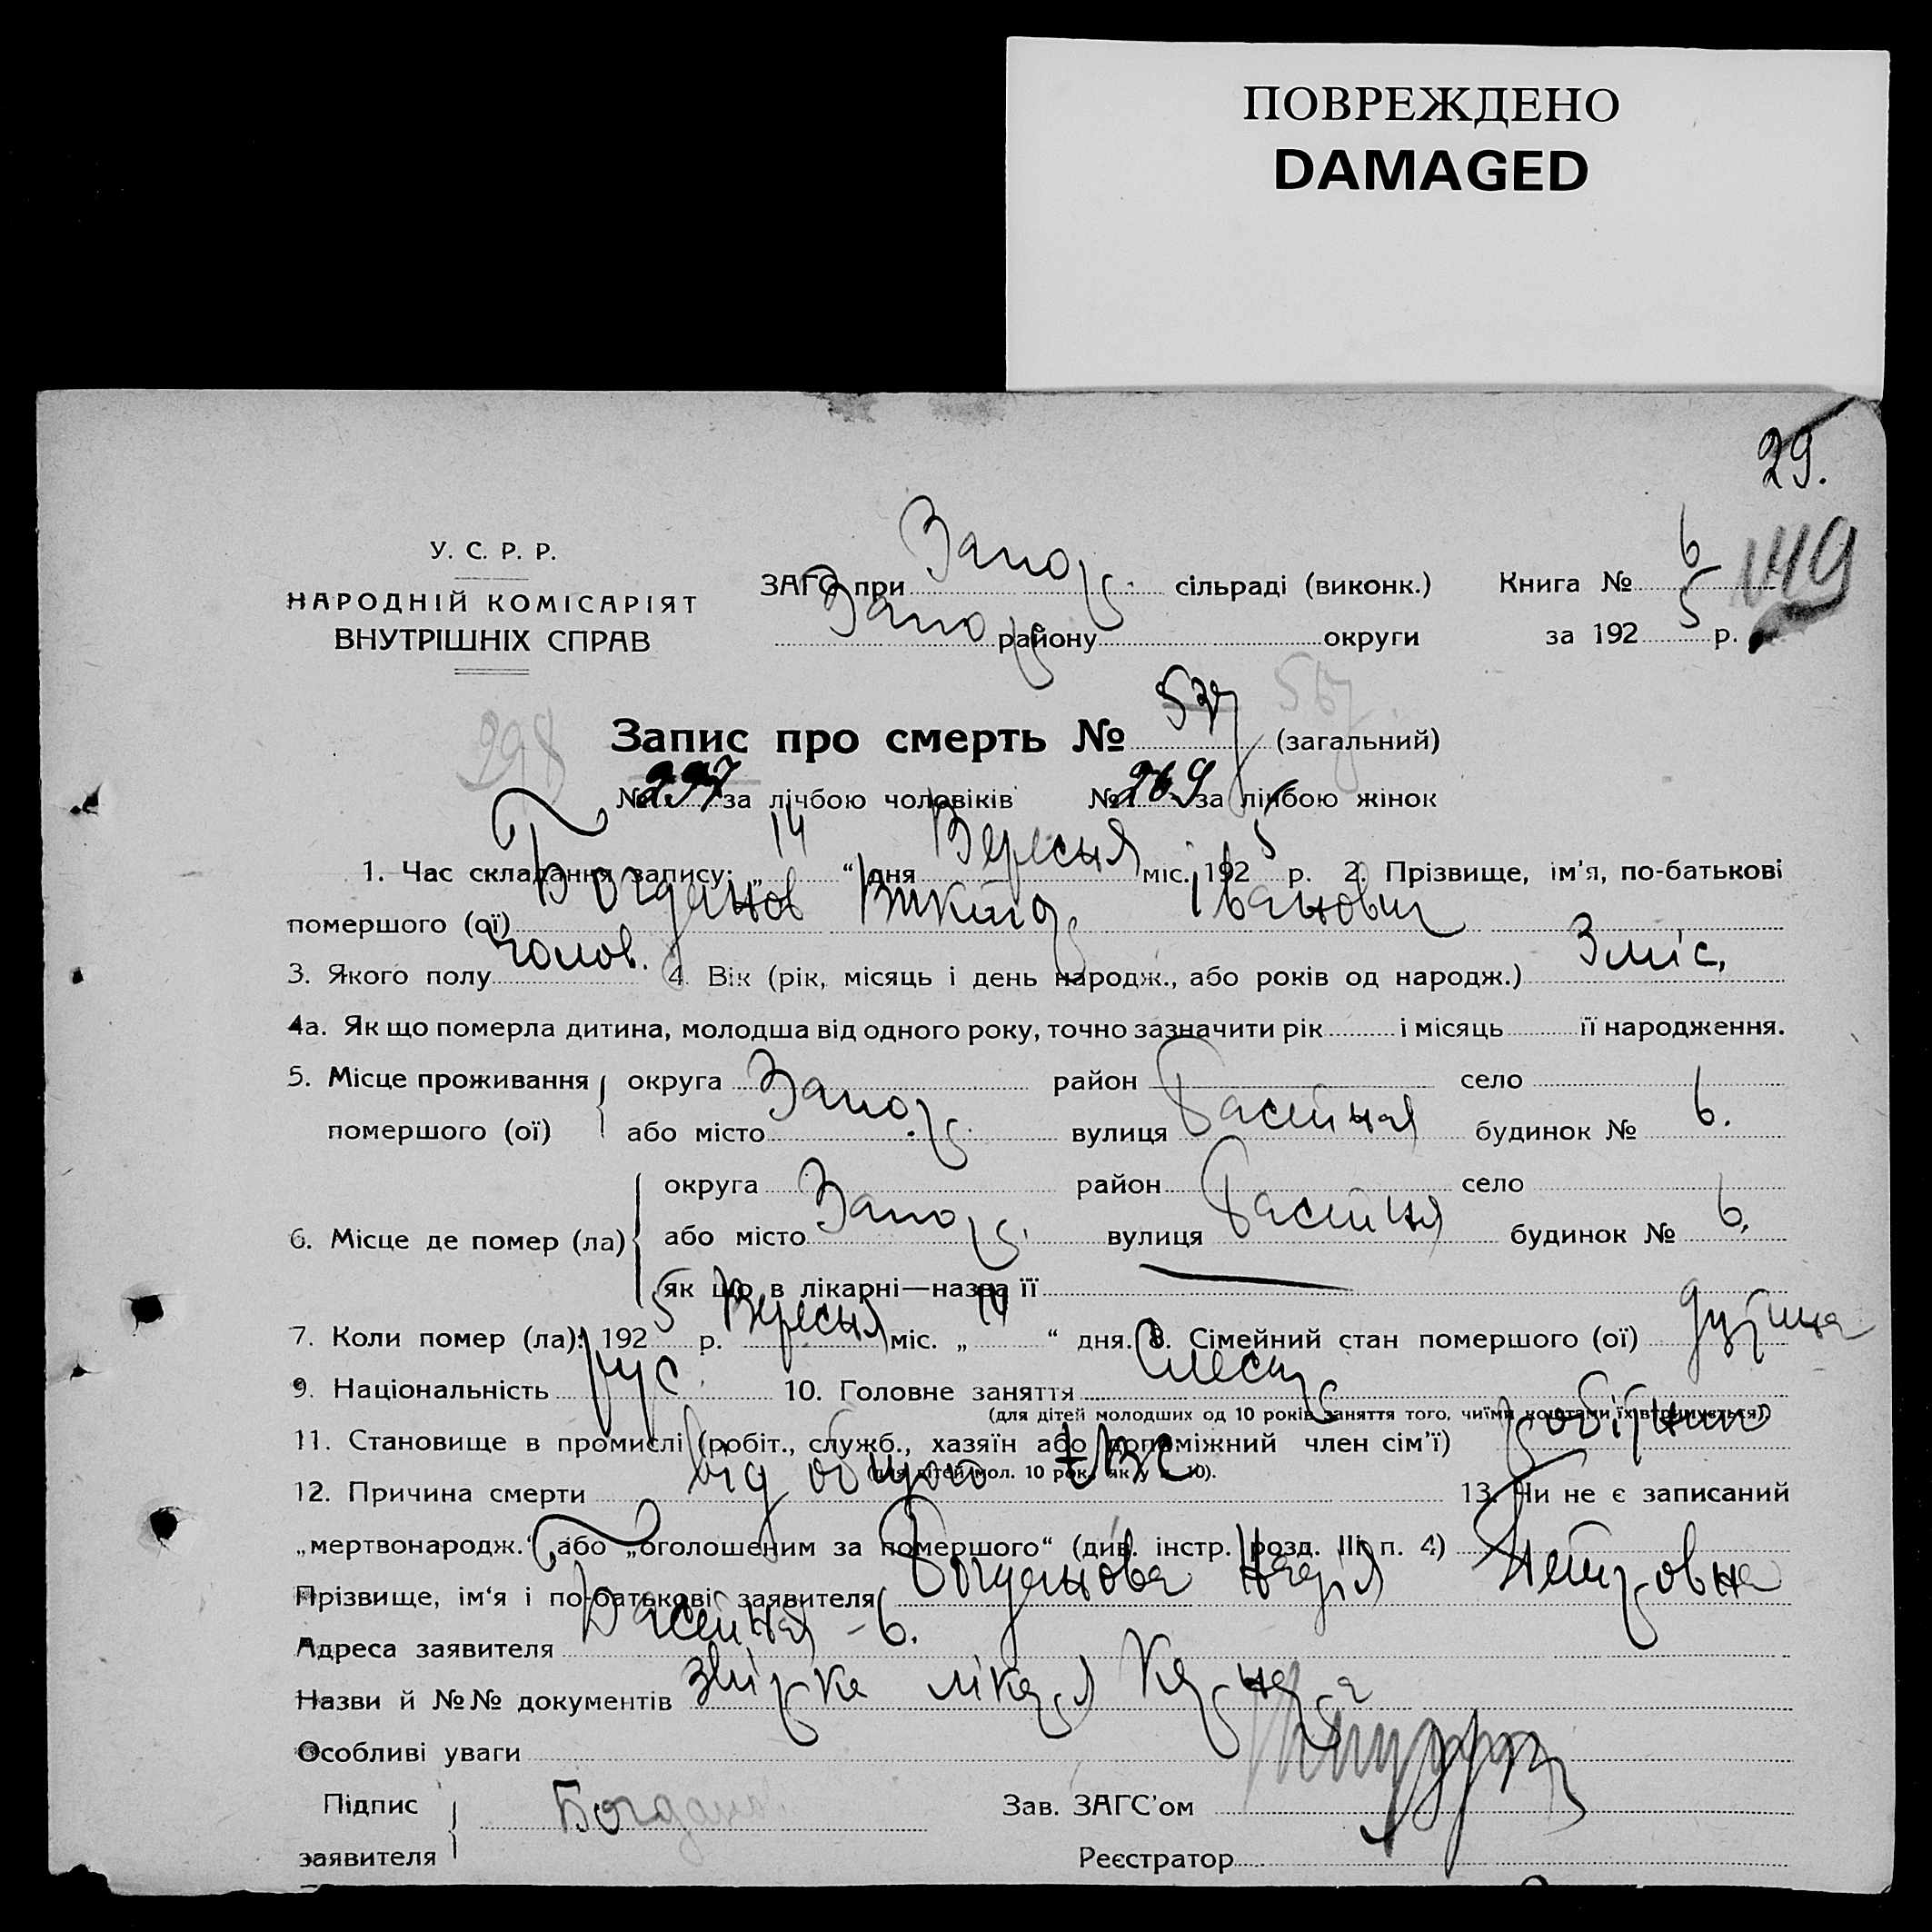 ПОВРЕЖДЕНО
DAMAGED
29.
149
У. С. Р. Р.
НАРОДНІЙ КОМІСАРІЯТ
ВНУТРІШНІХ СПРАВ
ЗАГС при Запор. сільраді (виконк.) Книга № 6
Запор району округи за 1925 р.
567
298
Запис про смерть № 537 (загальний)
№ 297 за лічбою чоловіків № 269 за лічбою жінок
1. Час складання запису: „14“ дня Вересня міс. 1925 р. 2. Прізвище, ім'я, по-батькові
помершого (ої) Богданов Віктор Іванович
3. Якого полу чолов. 4. Вік (рік, місяць і день народж., або років од народж.) 3 міс,
4а. Як що померла дитина, молодша від одного року, точно зазначити рік і місяць її народження.
5. Місце проживання округа район село
помершого (ої) або місто Запор. вулиця Басейная будинок № 6.
округа район село
6. Місце де помер (ла) або місто Запор. вулиця Басейня будинок № 6.
як що в лікарні—назва її
7. Коли помер (ла): 1925 р. Вересня міс. „14“ дня. 8. Сімейний стан помершого (ої) дитина
9. Національність рус. 10. Головне заняття Слесар
(для дітей молодших од 10 років заняття того, чиїми коштами їх втримується)
11. Становище в промислі (робіт., служб., хазяїн або допоміжний член сім'ї) робітник
(для дітей мол. 10 рок. як у п. 10).
12. Причина смерти від общого tbc 13. Чи не є записаний
„мертвонародж.“ або „оголошеним за помершого“ (див. інстр. розд. III п. 4)
Прізвище, ім'я і по-батькові заявителя Богданова Надія Петровна
Адреса заявителя Басейная - 6.
Назви й №№ документів лікаря
Особливі уваги
Підпис Богдано Зав. ЗАГС'ом
заявителя Реєстратор